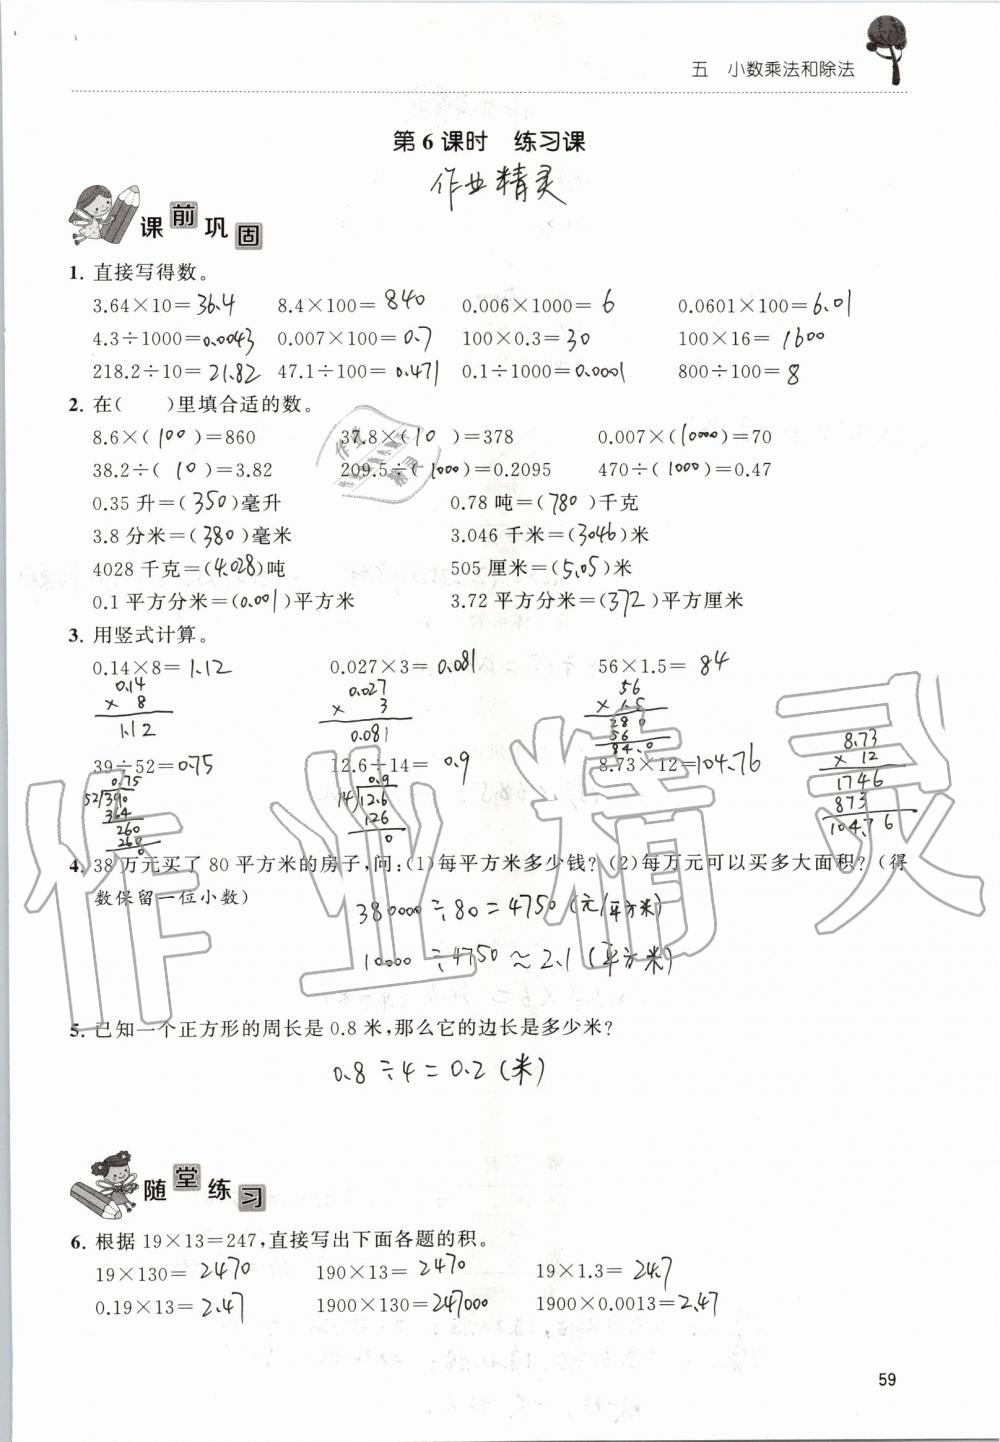 五 小数乘法和除法
第6课时 练习课
作业精灵
课前巩固
1. 直接写得数。
3.64×10=36.4 8.4×100=840 0.006×1000=6 0.0601×100=6.01
4.3÷1000=0.0043 0.007×100=0.7 100×0.3=30 100×16=1600
218.2÷10=21.82 47.1÷100=0.471 0.1÷1000=0.0001 800÷100=8
2. 在( )里填合适的数。
8.6×(100)=860 37.8×(10)=378 0.007×(10000)=70
38.2÷(10)=3.82 209.5÷(1000)=0.2095 470÷(1000)=0.47
0.35升=(350)毫升 0.78吨=(780)千克
3.8分米=(380)毫米 3.046千米=(3046)米
4028千克=(4.028)吨 505厘米=(5.05)米
0.1平方分米=(0.001)平方米 3.72平方分米=(372)平方厘米
3. 用竖式计算。
0.14×8=1.12 0.027×3=0.081 56×1.5=84
0.14 0.027 56
× 8 × 3 × 1.5
1.12 0.081 280
56
84.0
39÷52=0.75 12.6÷14=0.9 8.73×12=104.76
0.75 0.9 8.73
52 390 14 12.6 × 12
364 126 1746
260 0 873
260 104.76
0
4. 38万元买了80平方米的房子,问:(1)每平方米多少钱?(2)每万元可以买多大面积?(得
数保留一位小数)
380000÷80=4750(元/平方米)
10000÷4750≈2.1(平方米)
5. 已知一个正方形的周长是0.8米,那么它的边长是多少米?
0.8÷4=0.2(米)
随堂练习
6. 根据19×13=247,直接写出下面各题的积。
19×130=2470 190×13=2470 19×1.3=24.7
0.19×13=2.47 1900×130=247000 1900×0.0013=2.47
59
作业精灵